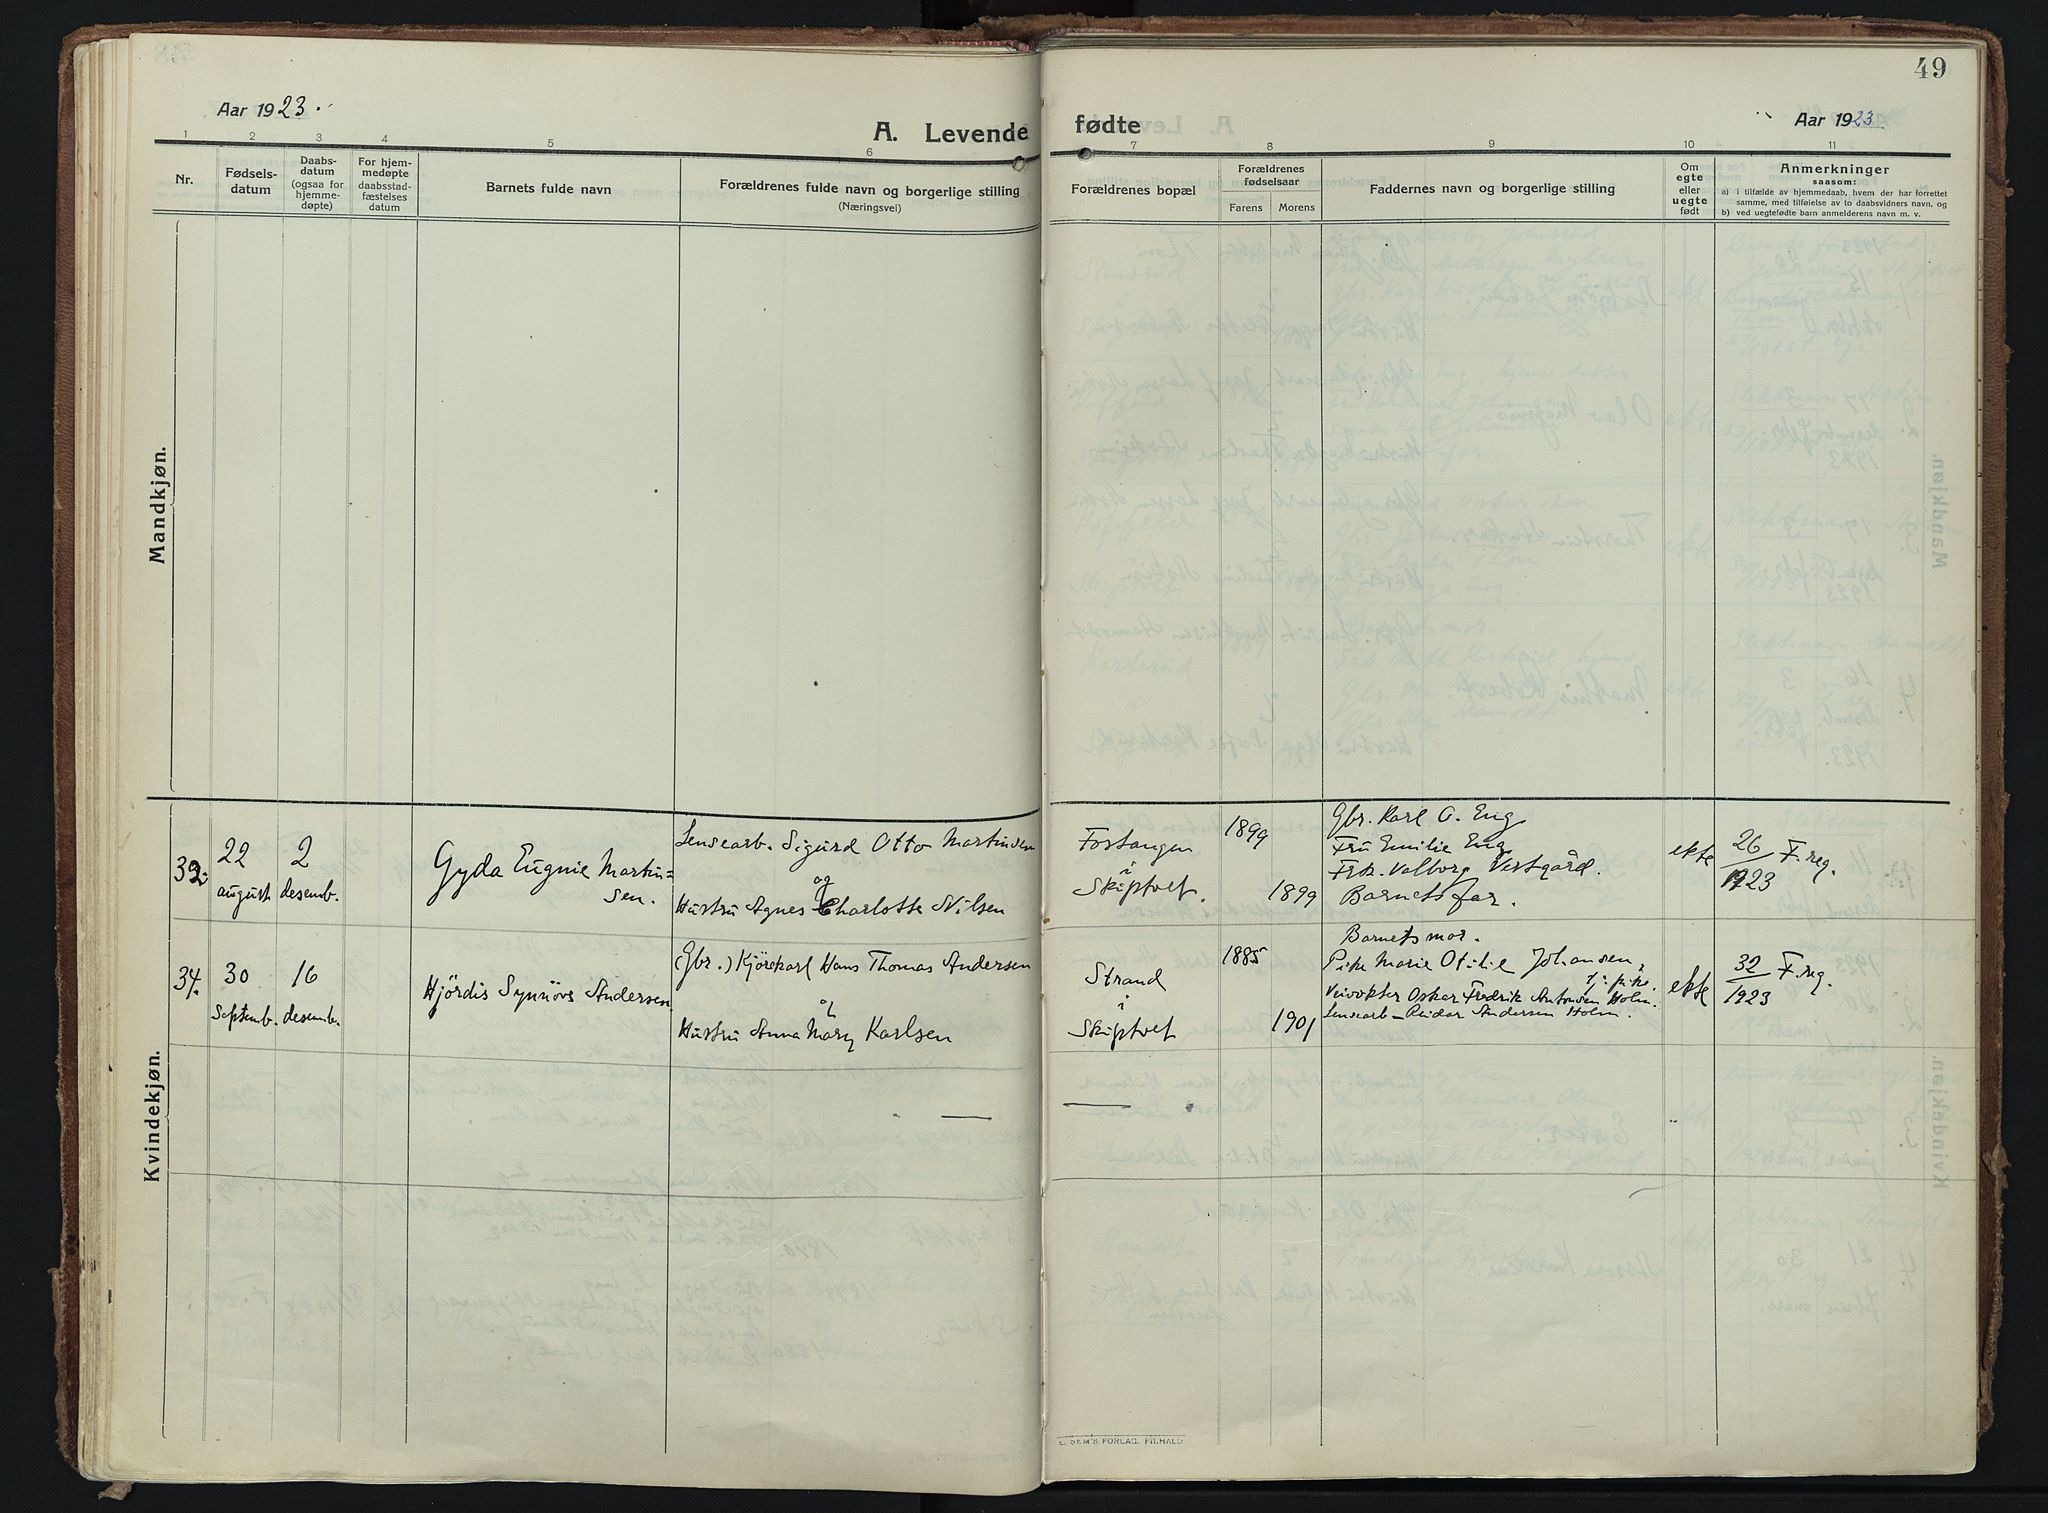 49
Aar 1923.
Aar 1923
A. Levende fødte
1 2 3 4 5 6 7 8 9 10 11
Nr.
Fødsels-
datum
Daabs-
datum
(ogsaa for
hjemme-
døpte)
For hjem-
medøpte
daabsstad-
fæstelses
datum
Barnets fulde navn
Forældrenes fulde navn og borgerlige stilling
(Næringsvei)
Forældrenes bopæl
Forældrenes
fødselsaar
Farens Morens
Faddernes navn og borgerlige stilling
Om
egte
eller
uegte
født
Anmerkninger
saasom:
a) i tilfælde av hjemmedaab, hvem der har forrettet
samme, med tilføielse av to daabsvidners navn, og
b) ved uegtefødte barn anmelderens navn m. v.
Mandkjøn.
Kvindekjøn.
33.
22
august
2
desemb.
Gyda Eugnie Martin=
sen.
Lensearb. Sigurd Otto Martinsen
og
Hustru Agnes Charlotte Nilsen
Fostangen
i
Skiptvet.
1899
1899
Gbr. Karl O. Eng
Fru Emilie Eng
Frk. Valborg Vestgård.
Barnets far.
ekte
26
1923
F. reg.
34.
30
septemb.
16
desemb.
Hjördis Synnöve Andersen
(Gbr.) Kjörekarl Hans Thomas Andersen
og
Hustru Anna Mary Karlsen
Strand
i
Skiptvet
1885
1901
Barnets mor.
Pike Marie Otilie Johansen,
tj. pike.
Veivokter Oskar Fredrik Antonsen Holm.
Lensearb. Reidar Andersen Holm.
ekte
32
1923
F. reg.
E. SEM'S FORLAG. FR.HALD